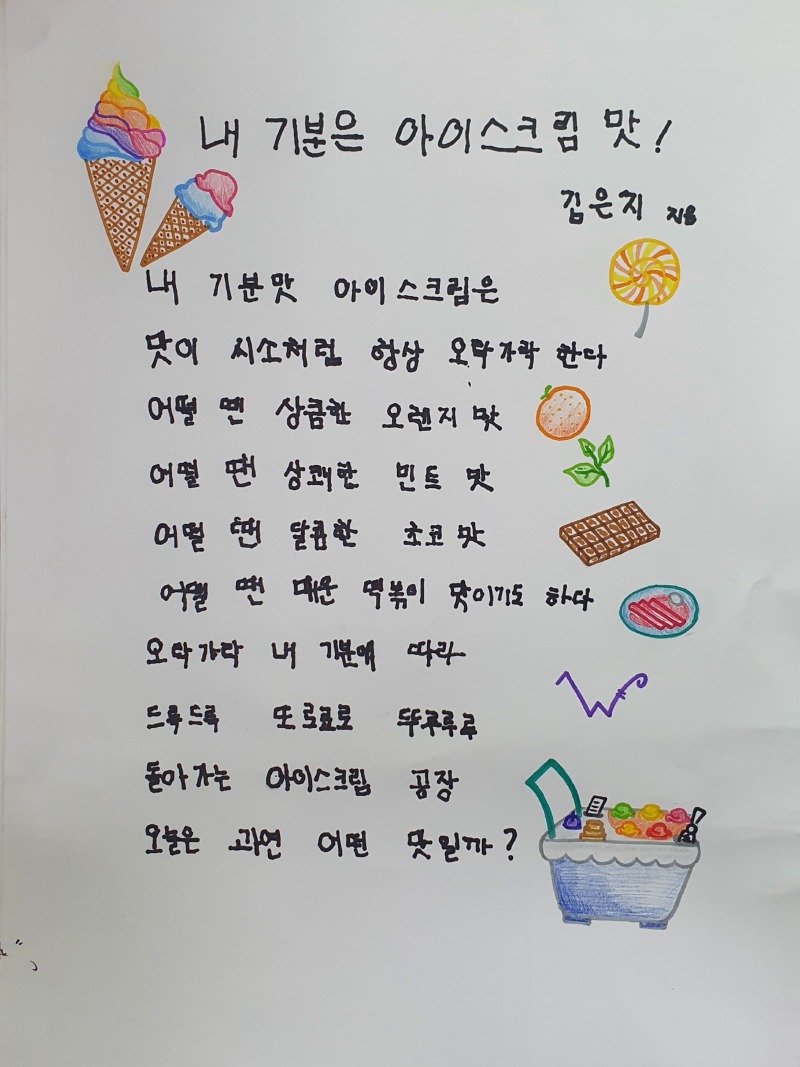 내 기분은 아이스크림 맛!
김은지 지음
내 기분맛 아이스크림은
맛이 시소처럼 항상 오락가락 한다
어떨 땐 상큼한 오렌지 맛
어떨 땐 상쾌한 민트 맛
어떨 땐 달콤한 초코 맛
어떨 땐 매운 떡볶이 맛이기도 하다
오락가락 내 기분에 따라
드륵드륵 또로로로 뚜루루루
돌아가는 아이스크림 공장
오늘은 과연 어떤 맛일까?